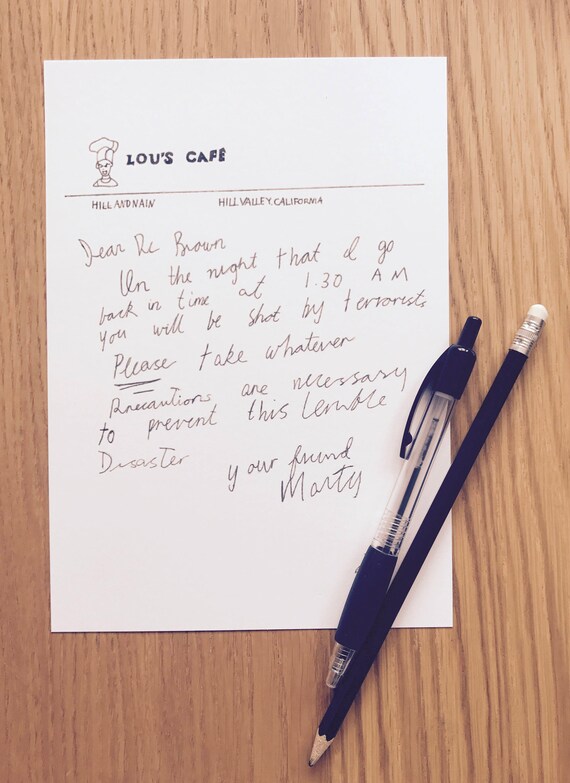 LOU'S CAFÉ
HILL AND NAIN HILL VALLEY, CALIFORNIA
Dear Dr Brown
On the night that I go
back in time at 1.30 AM
you will be shot by terrorists
Please take whatever
Precautions are necessary
to prevent this terrible
Disaster
your friend
Marty